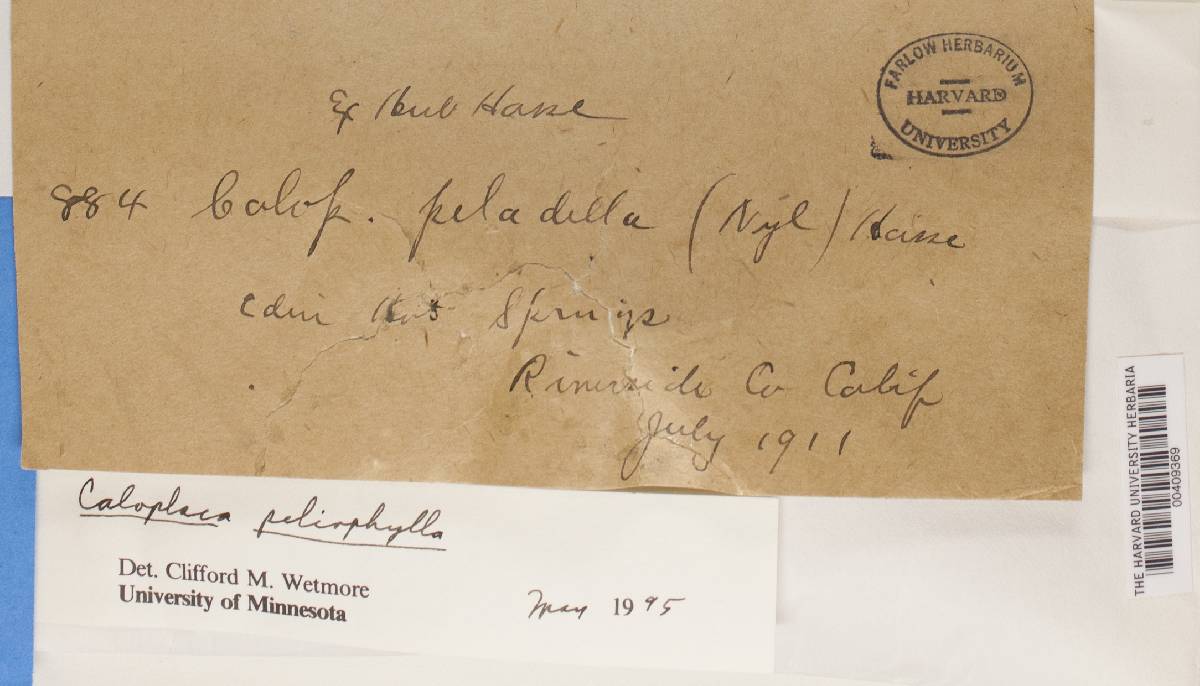 FARLOW HERBARIUM
HARVARD
UNIVERSITY
Ex Herb Hasse
884 Calop. peladella (Nyl) Hasse
Eden Hot Springs
Riverside Co Calif
July 1911
Caloplaca peliophylla
Det. Clifford M. Wetmore
University of Minnesota
May 1995
THE HARVARD UNIVERSITY HERBARIA
00409369